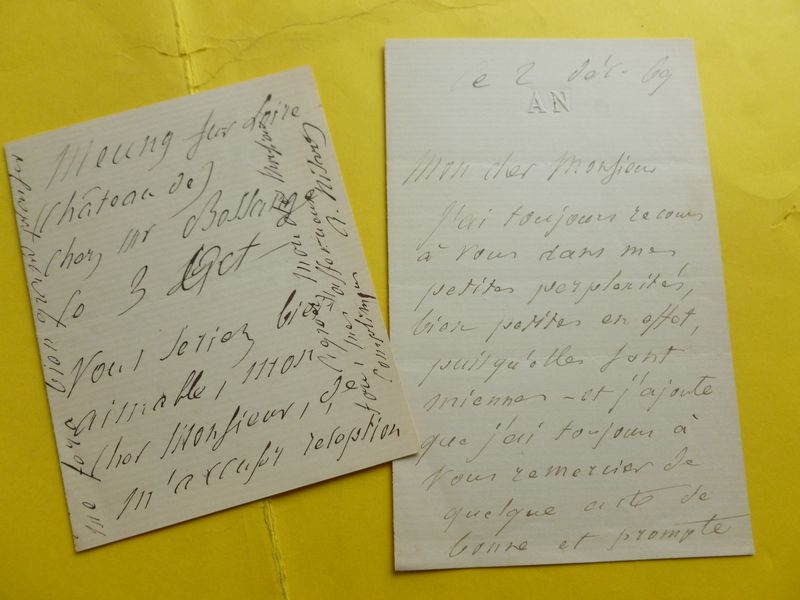 Meung sur Loire
(Château de)
Chez Mr
le 3 Oct
Vous seriez bien
aimable, mon
cher Monsieur, de
m'accuser réception
me fera bien grand plaisir
mon
Agréez
tous mes
compliments
affectueux
le 2 Déc - 69
AN
Mon cher Monsieur
J'ai toujours recours
à vous dans mes
petites perplexités,
bien petites en effet,
puisqu'elles sont
miennes - et j'ajoute
que j'ai toujours à
vous remercier de
quelque acte de
bonne et prompte